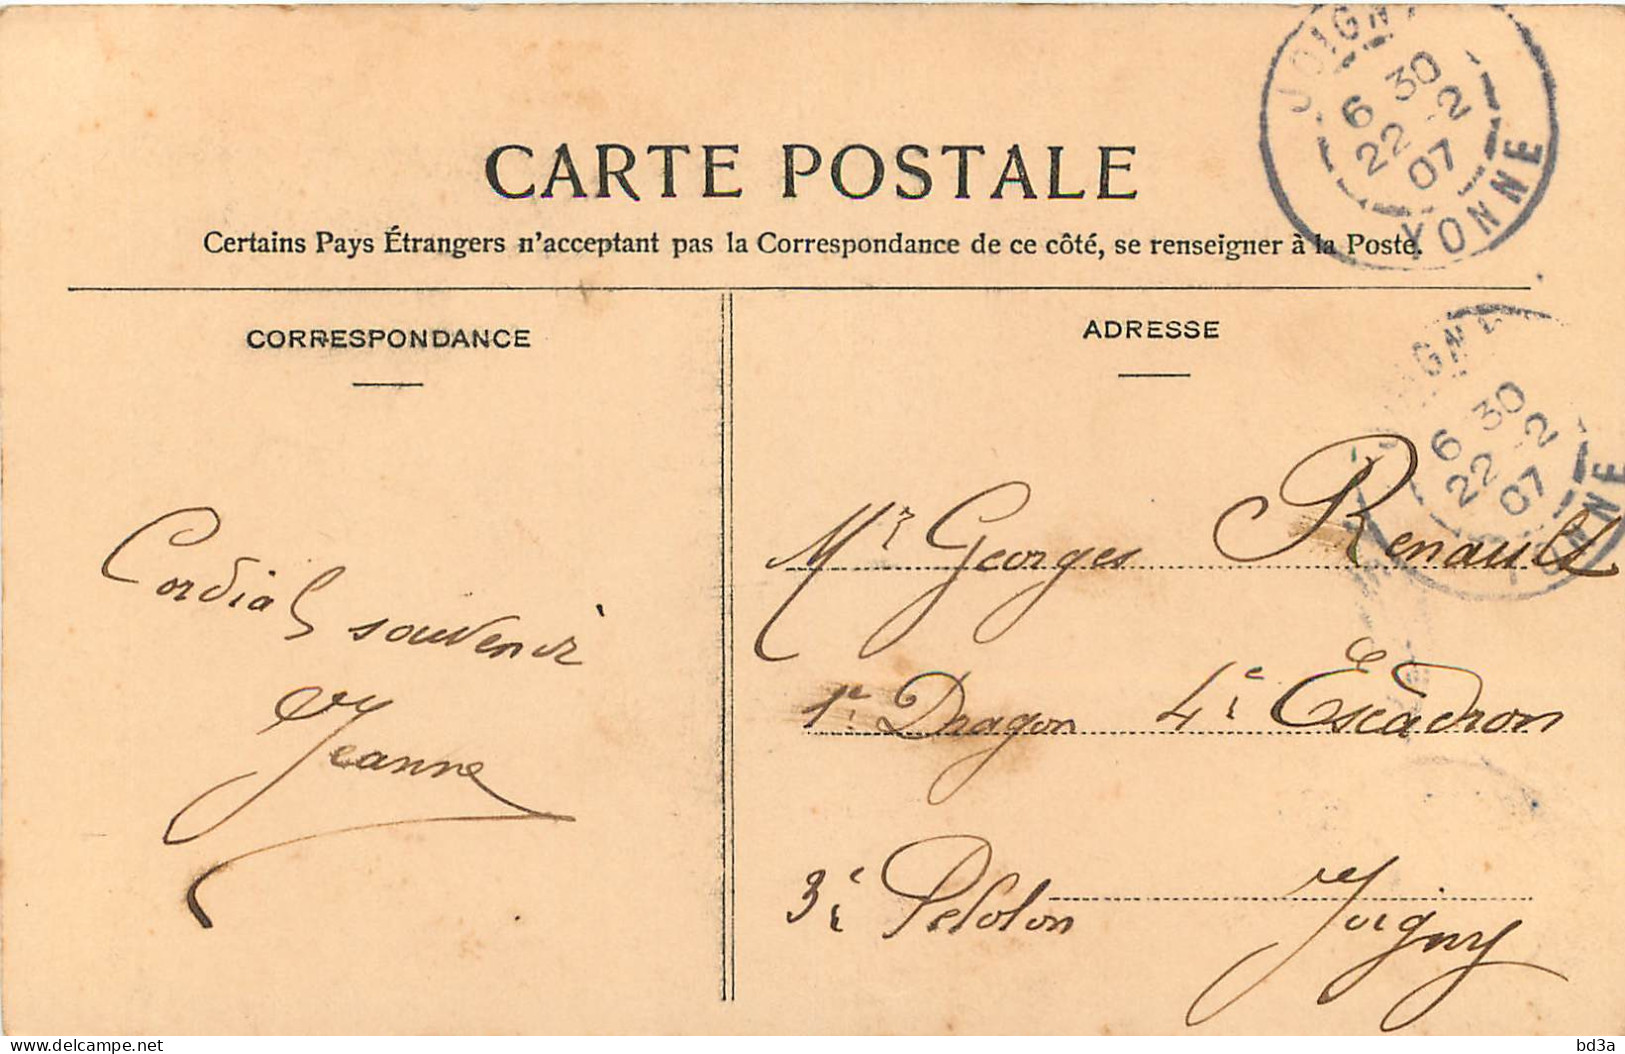 CARTE POSTALE
Certains Pays Étrangers n'acceptant pas la Correspondance de ce côté, se renseigner à la Poste.
JOIGNY
6 30
22 -2
07
YONNE
CORRESPONDANCE
ADRESSE
JOIGNY
6 30
22 -2
07
YONNE
Cordial souvenir
Jeanne
Mr Georges Renault
1r Dragon 4e Escadron
3e Peloton Joigny
delcampe.net
bd3a